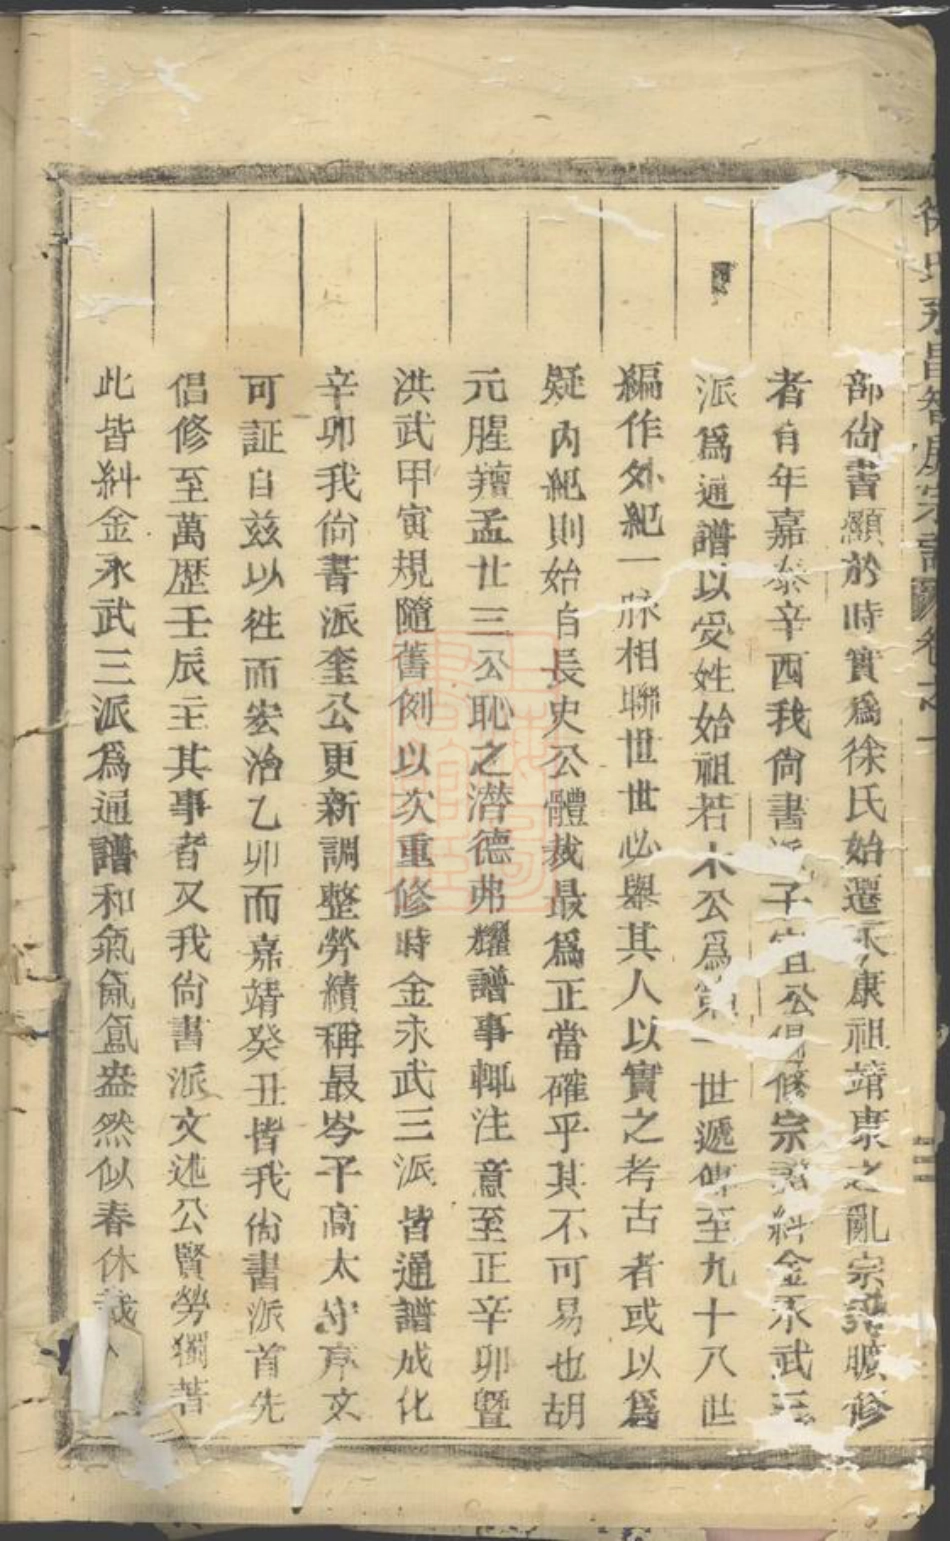 徐氏永昌智房宗譜 卷之一
部尙書顯於時實爲徐氏始遷永康祖靖康之亂宗譜曠修
者有年嘉泰辛酉我尙書派子宜公倡修宗譜糾金永武三
派爲通譜以受姓始祖若木公爲第一世遞傳至九十八世
編作外紀一脉相聯世世必舉其人以實之考古者或以爲
疑內紀則始自長史公體裁最爲正當確乎其不可易也胡
元腥羶孟廿三公恥之潛德弗耀譜事輒注意至正辛卯曁
洪武甲寅規隨舊例以次重修時金永武三派皆通譜成化
辛卯我尙書派奎公更新調整勞績稱最岑平高太守序文
可証自兹以徃而宏治乙卯而嘉靖癸丑皆我尙書派首先
倡修至萬歷壬辰主其事者又我尙書派文述公賢勞獨著
此皆糾金永武三派爲通譜和氣氤氳盎然似春休哉